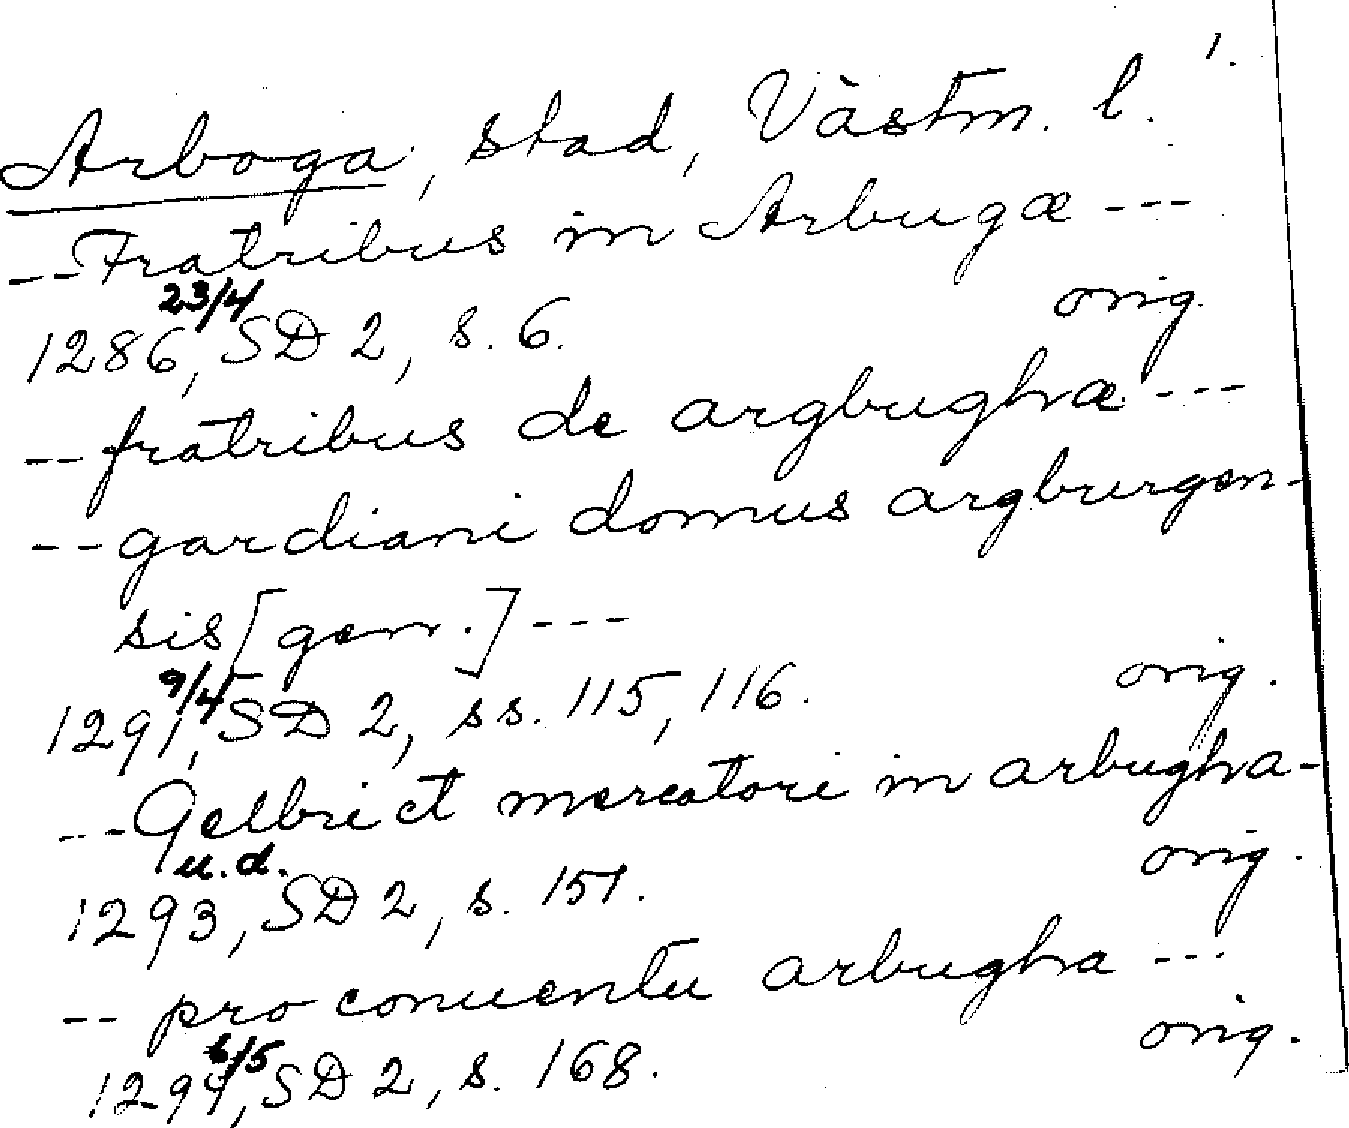 1.
Arboga, stad, Västm. l.
--Fratribus in Arbugæ ---
1286, 23/4 SD 2, s. 6. orig.
-- fratribus de argbughæ ---
-- gardiani domus argburgen-
sis [gen.] ---
1291, 9/4 SD 2, ss. 115, 116. orig.
--- Gelbrict mercatori in arbugha-
1293, u.d. SD 2, s. 151. orig.
-- pro conuentu arbugha ---
1294, 6/5 SD 2, s. 168. orig.